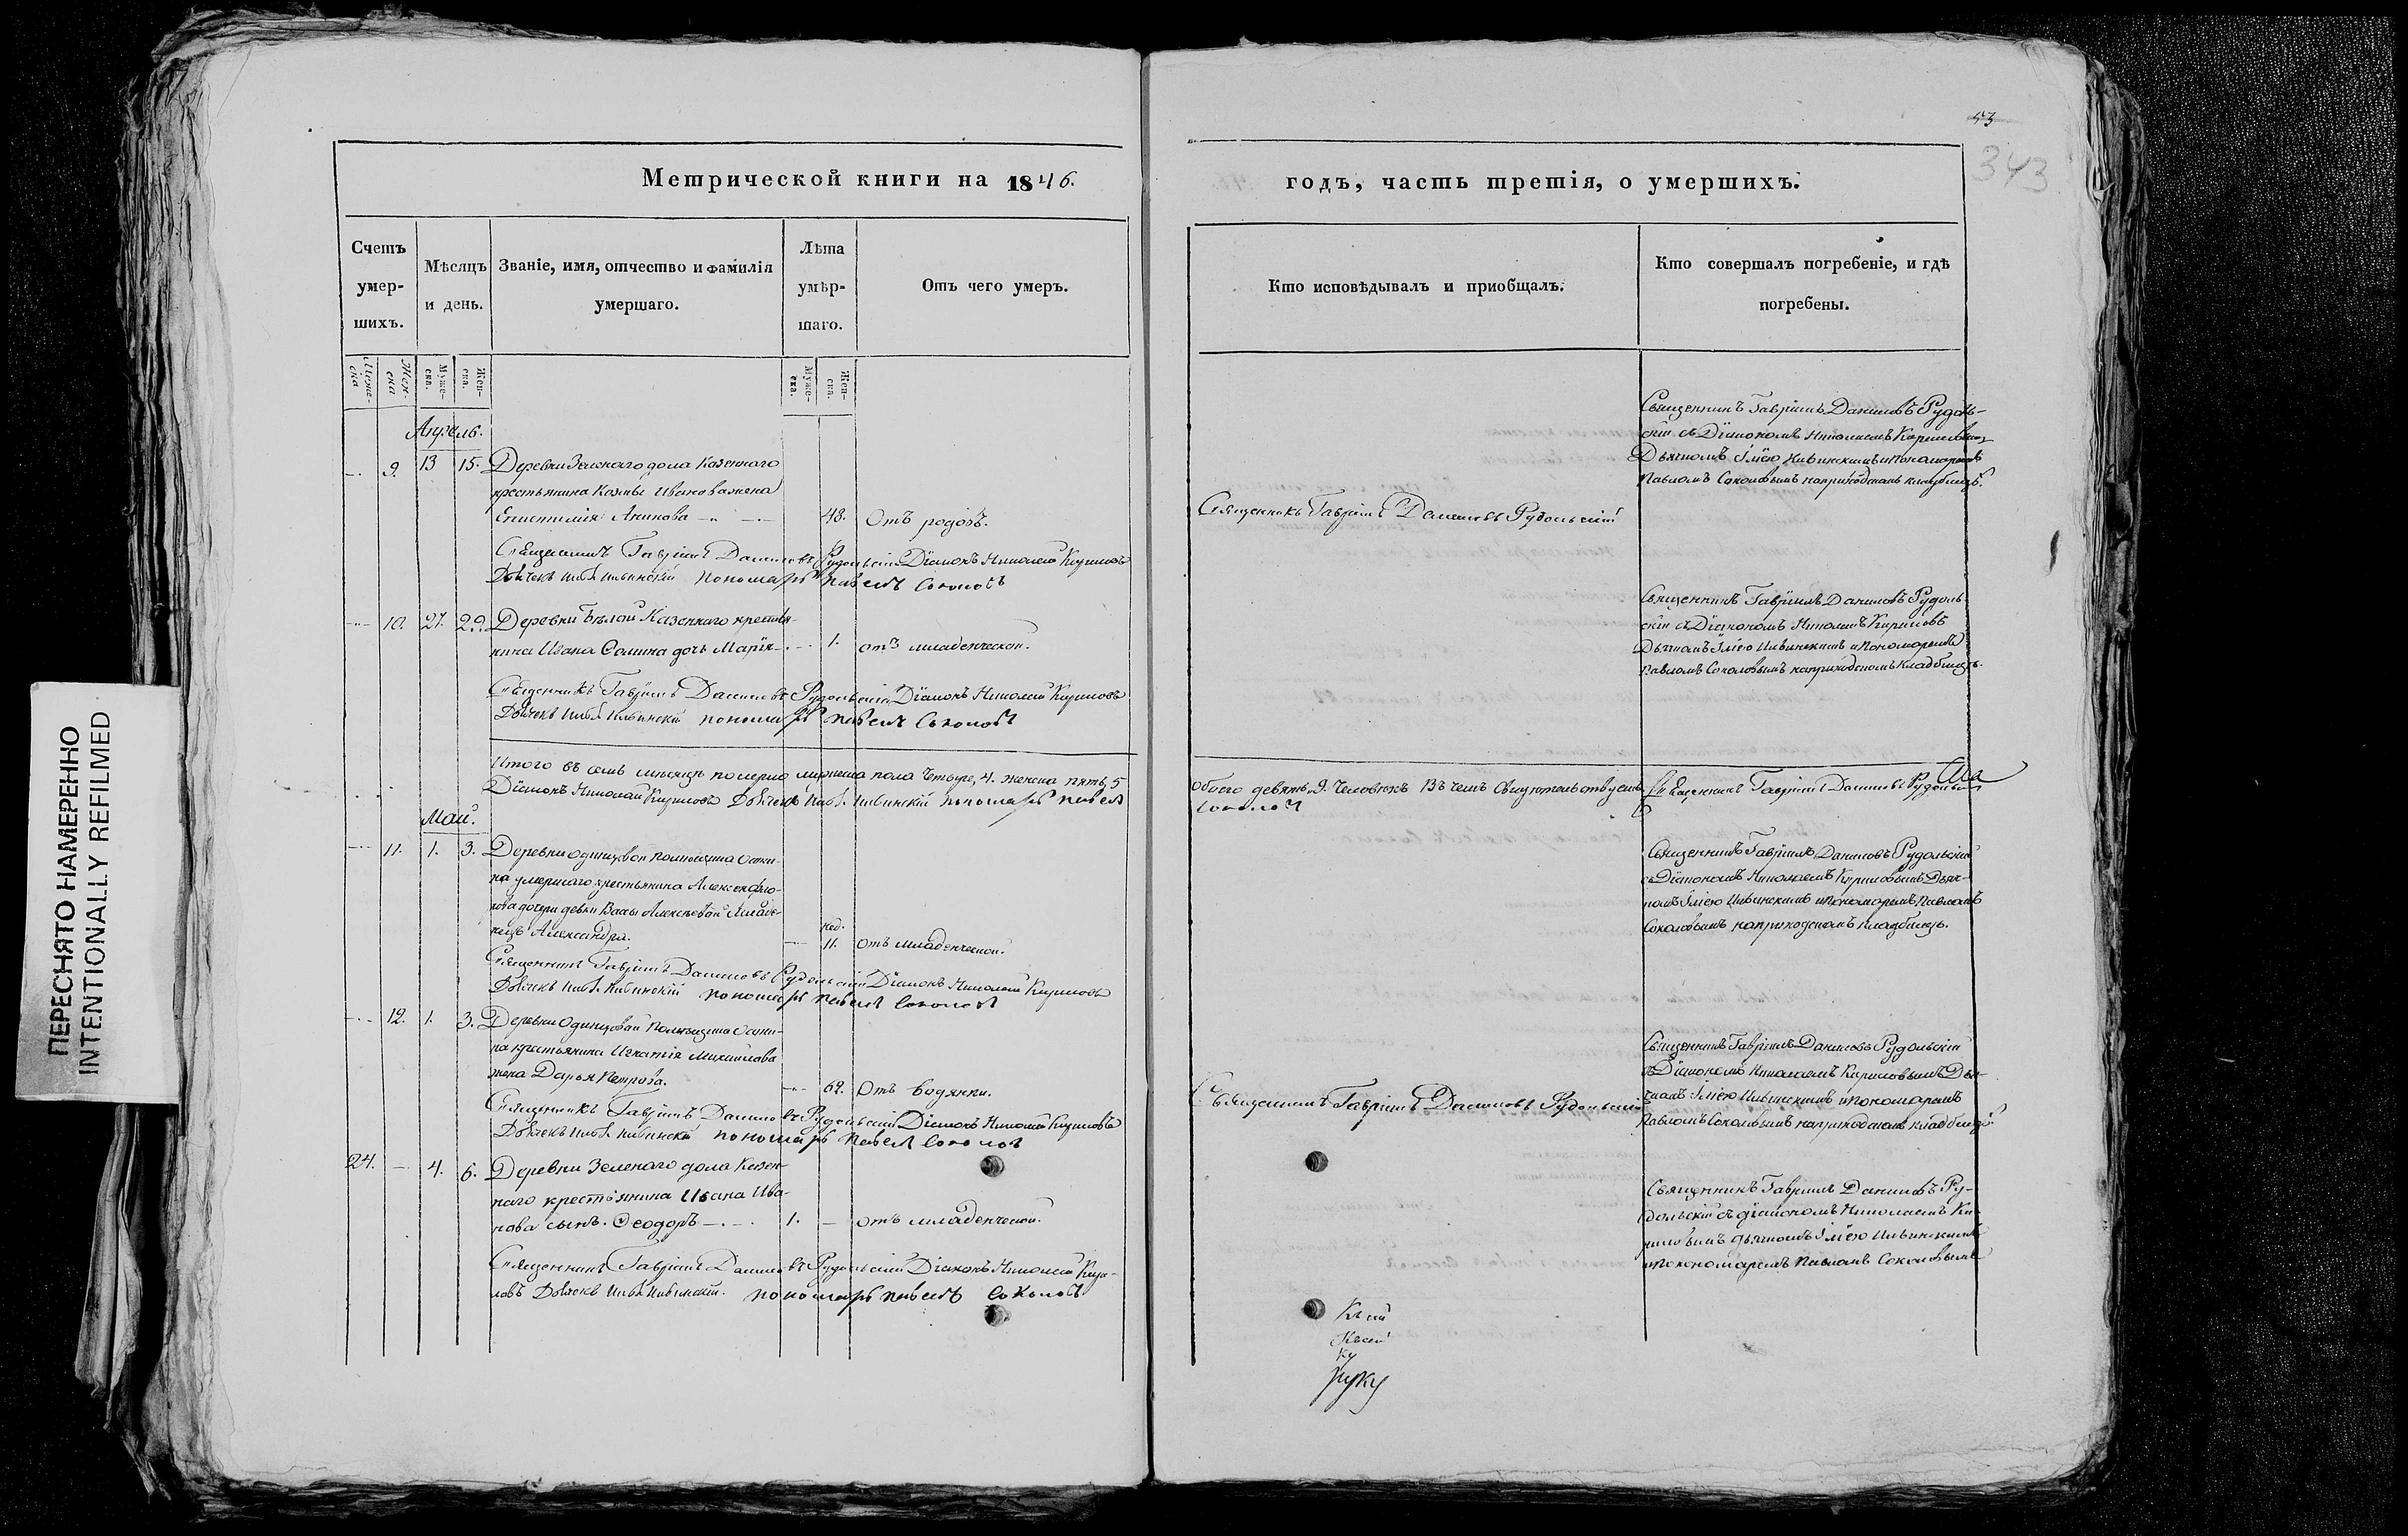 53
343
Метрической книги на 1846.
годъ, часть третія, о умершихъ.
Счетъ умер-шихъ.
Мѣсяцъ и день.
Званіе, имя, отчество и фамилія умершаго.
Лѣта умѣр-шаго.
Отъ чего умеръ.
Кто исповѣдывалъ и приобщалъ.
Кто совершалъ погребеніе, и гдѣ погребены.
Муже-ска. Жен-ска. Муже-ска. Жен-ска.
Муже-ска. Жен-ска.
Апрель.
9. 13 15. Деревни Зеленаго дола Казеннаго
крестьянина Козмы Иванова жена
Епистимія Акинова 48. Отъ родовъ.
Священникъ Гавріилъ Даниловъ Рудольскій Діаконъ Николай Кириловъ
Дьячекъ Илья Ильинскій пономарь Павелъ Соколовъ
Священникъ Гавріилъ Даниловъ Рудольскій
Священникъ Гавріилъ Даниловъ Рудоль-
скій съ Діакономъ Николаемъ Кириловымъ
Дьячкомъ Ильею Ильинскимъ и пономаремъ
Павломъ Соколовымъ на приходскомъ кладбищѣ.
10. 27. 29. Деревни Бѣлой Казеннаго крестья-
нина Ивана Сомина дочь Марія 1. отъ младенческой.
Священникъ Гавріилъ Даниловъ Рудольскій Діаконъ Николай Кириловъ
Дьячекъ Илья Ильинскій пономарь Павелъ Соколовъ
Священникъ Гавріилъ Даниловъ Рудоль-
скій съ Діакономъ Николаемъ Кириловъ
Дьячкомъ Ильею Ильинскимъ и пономаремъ
Павломъ Соколовымъ на приходскомъ Кладбищѣ.
Итого въ семъ месяцѣ померло мужеска пола Четыре, 4. женска пять, 5
обоего девять, 9. Человѣкъ Въ чемъ Свидѣтельствуемъ Священникъ Гавріилъ Даниловъ Рудольскій
Діаконъ Николай Кириловъ Дьячекъ Илья Ильинскій пономарь Павелъ
Соколовъ
Май.
11. 1. 3. Деревни Одинцовой помещика Осоки-
на умершаго крестьянина Алексея
дочери девки Васы Алексѣевой Младе-
нецъ Александра. нед. 11. отъ младенческой.
Священникъ Гавріилъ Даниловъ Рудольскій Діаконъ Николай Кириловъ
Дьячекъ Илья Ильинскій пономарь Павелъ Соколовъ
Священникъ Гавріилъ Даниловъ Рудольскій
съ Діакономъ Николаемъ Кириловымъ Дьяч-
комъ Ильею Ильинскимъ и пономаремъ Павломъ
Соколовымъ на приходскомъ кладбищѣ.
12. 1. 3. Деревни Одинцовой помещика Осоки-
на крестьянина Игнатія Михайлова
жена Дарья Петрова. 62. Отъ водянки.
Священникъ Гавріилъ Даниловъ Рудольскій Діаконъ Николай Кириловъ
Дьячекъ Илья Ильинскій пономарь Павелъ Соколовъ
Священникъ Гавріилъ Даниловъ Рудольскій
Священникъ Гавріилъ Даниловъ Рудольскій
съ Діакономъ Николаемъ Кириловымъ Дья-
чкомъ Ильею Ильинскимъ и пономаремъ
Павломъ Соколовымъ на приходскомъ кладбищѣ.
24. 4. 6. Деревни Зеленаго дола Казен-
наго крестьянина Ивана Ива-
нова сынъ Ѳеодоръ 1. отъ младенческой.
Священникъ Гавріилъ Даниловъ Рудольскій Діаконъ Николай Кири-
ловъ Дьячекъ Илья Ильинскій. пономарь Павелъ Соколовъ
Священникъ Гавріилъ Даниловъ Ру-
дольскій съ діакономъ Николаемъ Ки-
риловымъ дьячкомъ Ильею Ильинскимъ
и пономаремъ Павломъ Соколовымъ
Ку
руку
ПЕРЕСНЯТО НАМЕРЕННО
INTENTIONALLY REFILMED